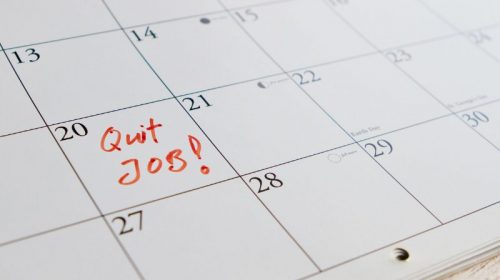 13
14
15
20
Quit
JOB!
21
22
Earth Day
23
27
28
29
30